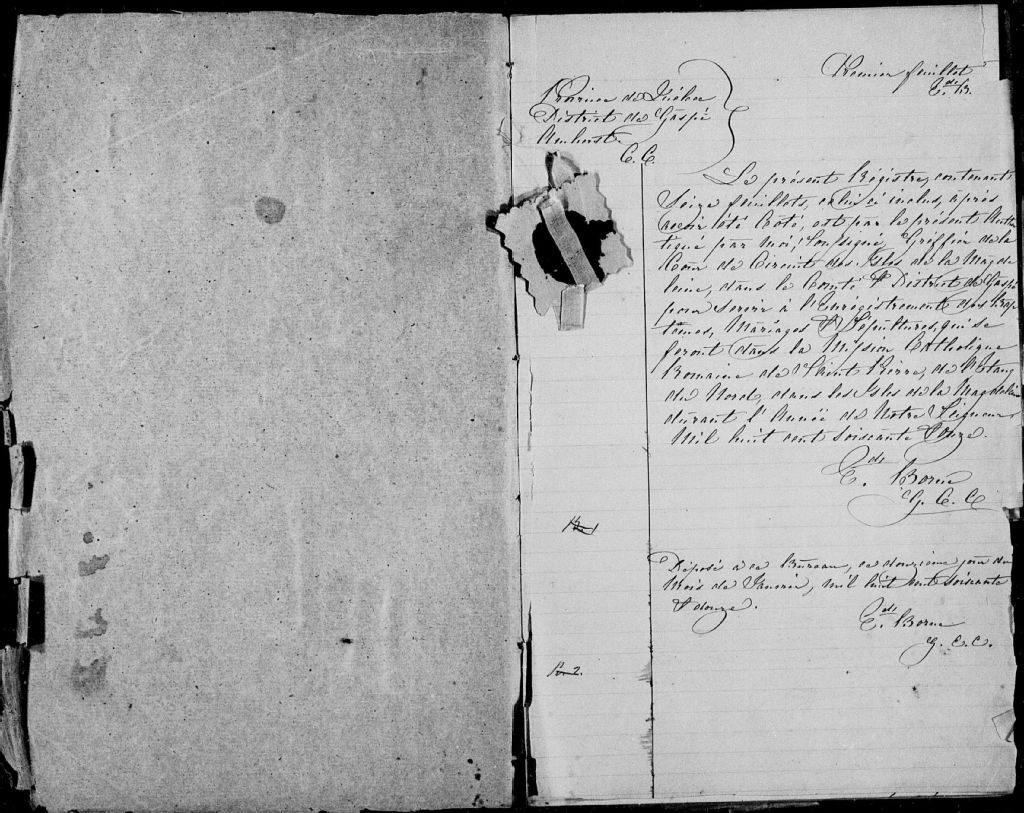 Premier feuillet
E.de B.
Province de Québec
District de Gaspé
Amherst.
C. C.
Le présent Régistre, contenant
Seize feuillets, celui ci inclus, après
avoir été Coté, est par le présent Authen
tiqué par Moi, Soussigné, Gréffier de la
Cour de Circuit des Isles de la Magde
leine, dans le Comté & District de Gaspé
pour servir à l'Enrégistrement des Bap
têmes, Mariages & Sépultures, qui se
feront dans la Mission Catholique
Romaine de Saint Pierre, de l'Etang
du Nord, dans les Isles de la Magdeleine
durant l'Année de Notre Seigneur
Mil huit cent soisante & onze.
E.de Borne
G. C. C.
1
Déposé à ce Bureau, ce douzième jour du
Mois de Janvier, mil huit cent soisante
& douze.
E.de Borne
G. C. C.
2.